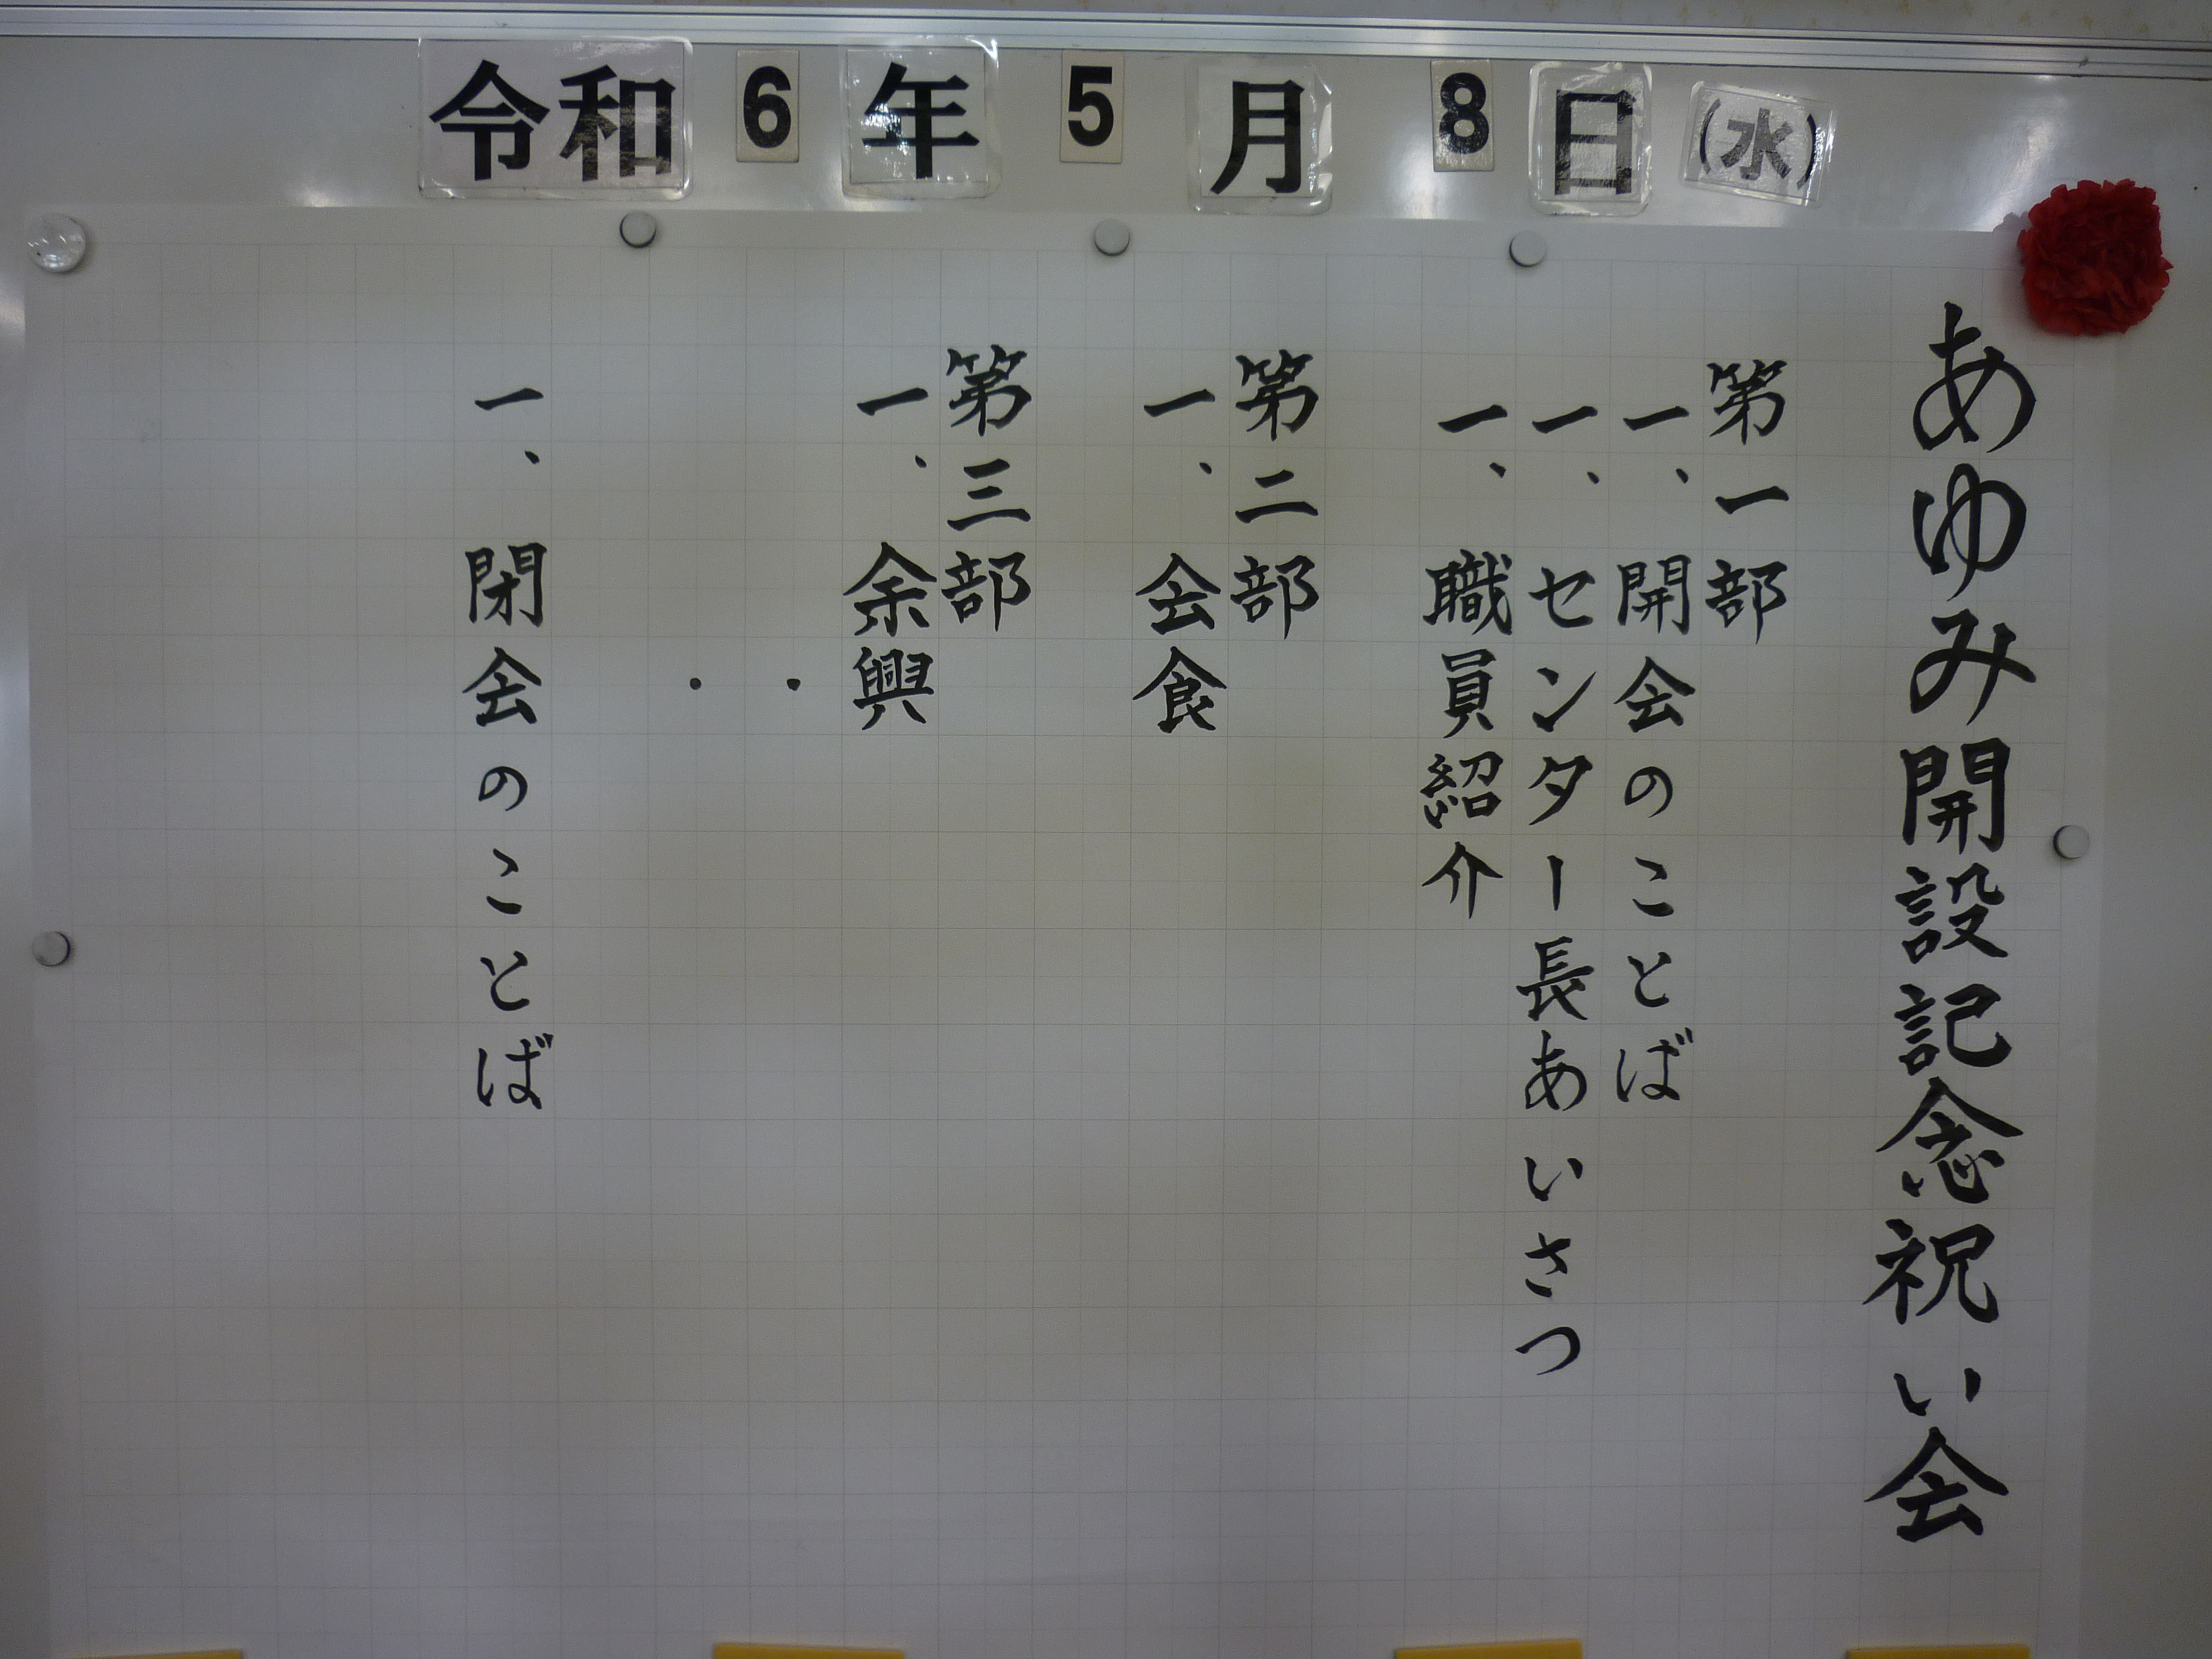 令和6年5月8日(水)
あゆみ開設記念祝い会
第一部
一、開会のことば
一、センター長あいさつ
一、職員紹介
第二部
一、会食
第三部
一、余興
・
・
一、閉会のことば